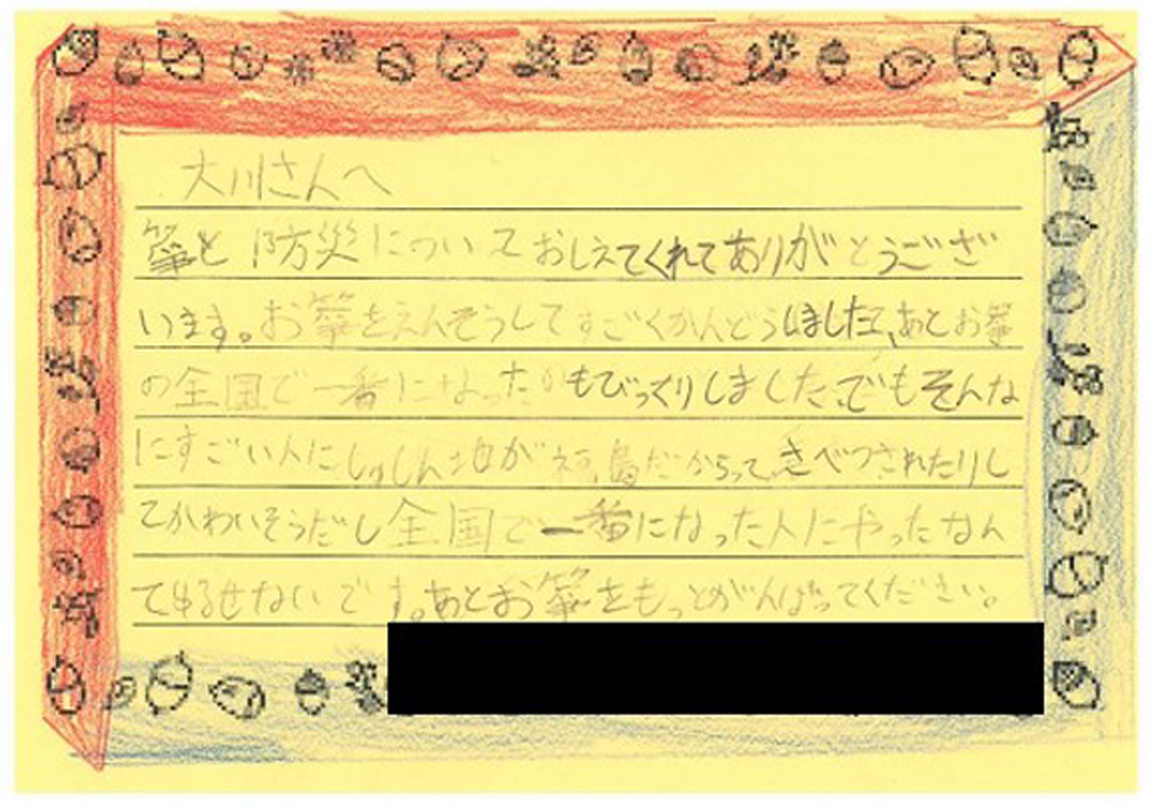 大川さんへ
箏と防災についておしえてくれてありがとうござ
います。お箏をえんそうしてすごくかんどうしました、あとお箏
の全国で一番になったのもびっくりしました。でもそんな
にすごい人にしゅしん地が福島だからって、きべつされたりし
てかわいそうだし全国で一番になった人にやったなん
てゆるせないです。あとお箏をもっとがんばってください。